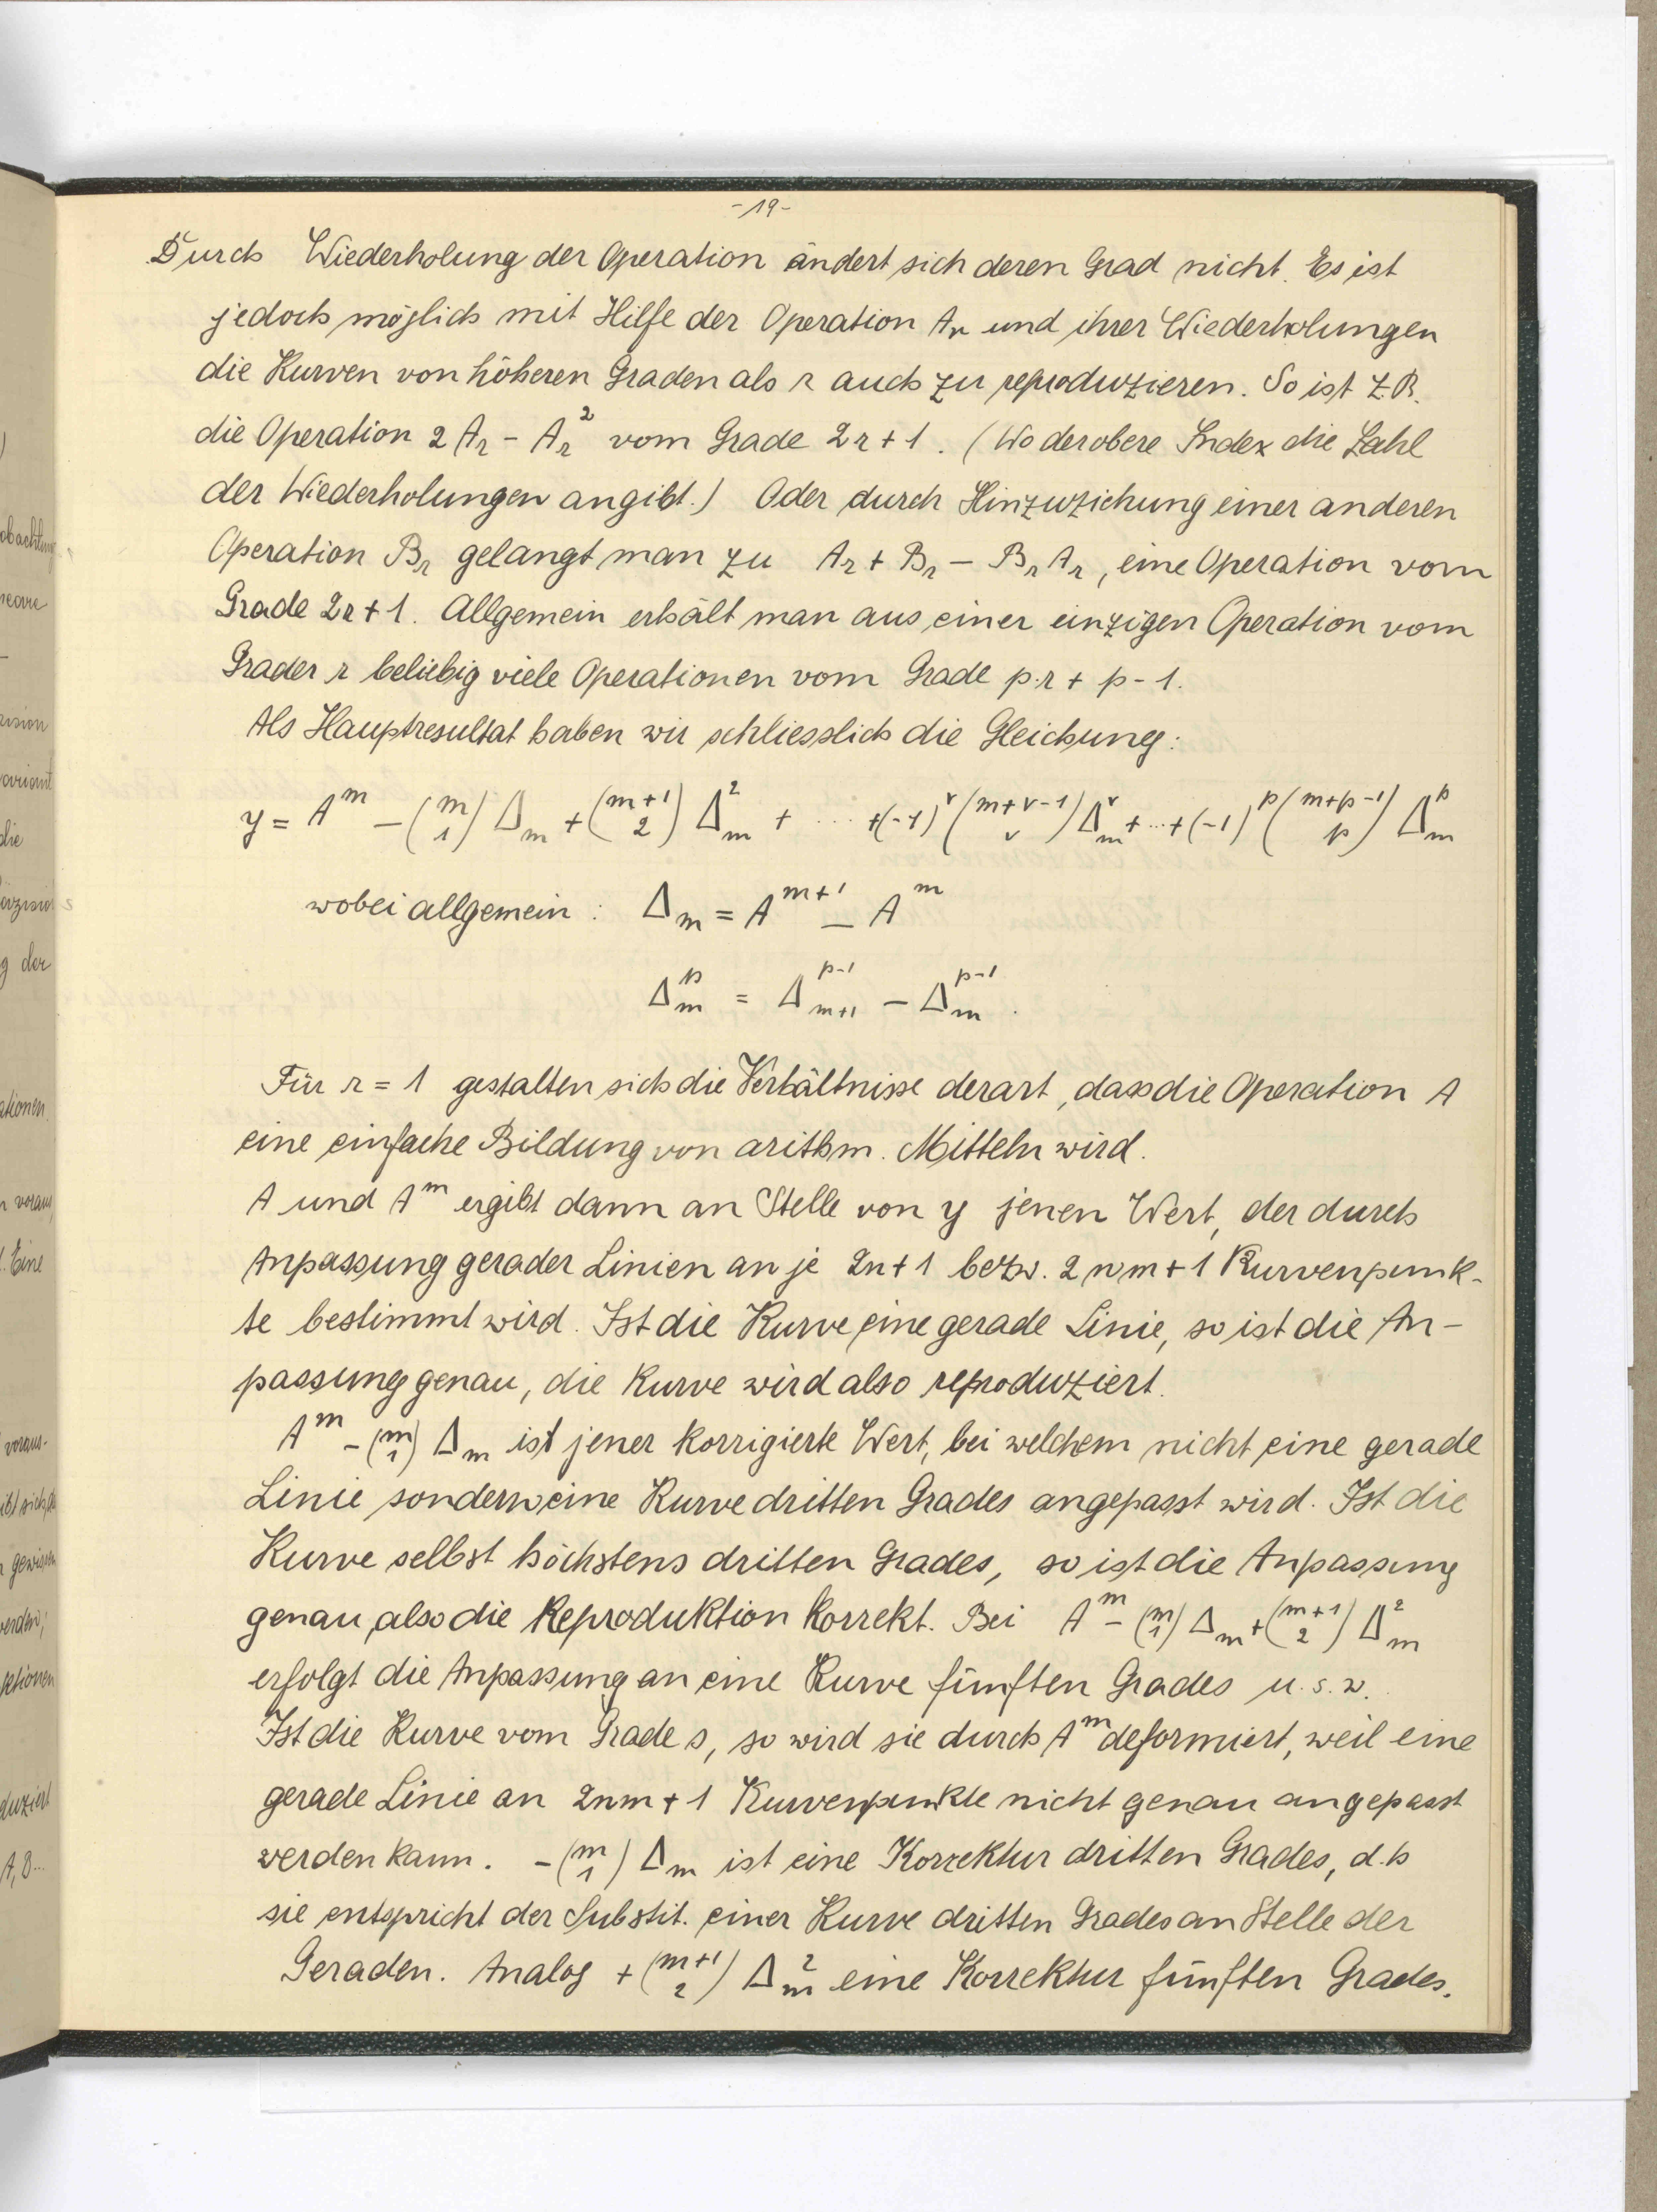 -19-
Durch Wiederholung der Operation ändert sich deren Grad nicht. Es ist
jedoch möglich mit Hilfe der Operation Ar und ihrer Wiederholungen
die Kurven von höheren Graden als r auch zu reproduzieren. So ist z.B.
die Operation 2 A_r - A_r^2 vom Grade 2r + 1. (Wo der obere Index die Zahl
der Wiederholungen angibt.) Oder durch Hinzuziehung einer anderen
Operation B_r gelangt man zu A_r + B_r - B_r A_r, eine Operation vom
Grade 2r + 1. Allgemein erhält man aus einer einzigen Operation vom
Grader r beliebig viele Operationen vom Grade p.r + p - 1.
Als Hauptresultat haben wir schliesslich die Gleichung:
y = A^m - (m 1) Δ_m + (m+1 2) Δ_m^2 + ... + (-1)^v (m+v-1 v) Δ_m^v + ... + (-1)^p (m+p-1 p) Δ_m^p
wobei allgemein: Δ_m = A^{m+1} - A^m
Δ_m^p = Δ_{m+1}^{p-1} - Δ_m^{p-1}.
Für r = 1 gestalten sich die Verhältnisse derart, dass die Operation A
eine einfache Bildung von arithm. Mitteln wird.
A und A^m ergibt dann an Stelle von y jenen Wert, der durch
Anpassung gerader Linien an je 2n+1 bezw. 2nm+1 Kurvenpunk-
te bestimmt wird. Ist die Kurve eine gerade Linie, so ist die An-
passung genau, die Kurve wird also reproduziert.
A^m - (m 1) Δ_m ist jener korrigierte Wert, bei welchem nicht eine gerade
Linie sondern eine Kurve dritten Grades angepasst wird. Ist die
Kurve selbst höchstens dritten Grades, so ist die Anpassung
genau, also die Reproduktion korrekt. Bei A^m - (m 1) Δ_m + (m+1 2) Δ_m^2
erfolgt die Anpassung an eine Kurve fünften Grades u.s.w.
Ist die Kurve vom Grade s, so wird sie durch A^m deformiert, weil eine
gerade Linie an 2nm+1 Kurvenpunkte nicht genau angepasst
werden kann. -(m 1) Δ_m ist eine Korrektur dritten Grades, d.h
sie entspricht der Substit. einer Kurve dritten Grades an Stelle der
Geraden. Analog + (m+1 2) Δ_m^2 eine Korrektur fünften Grades.